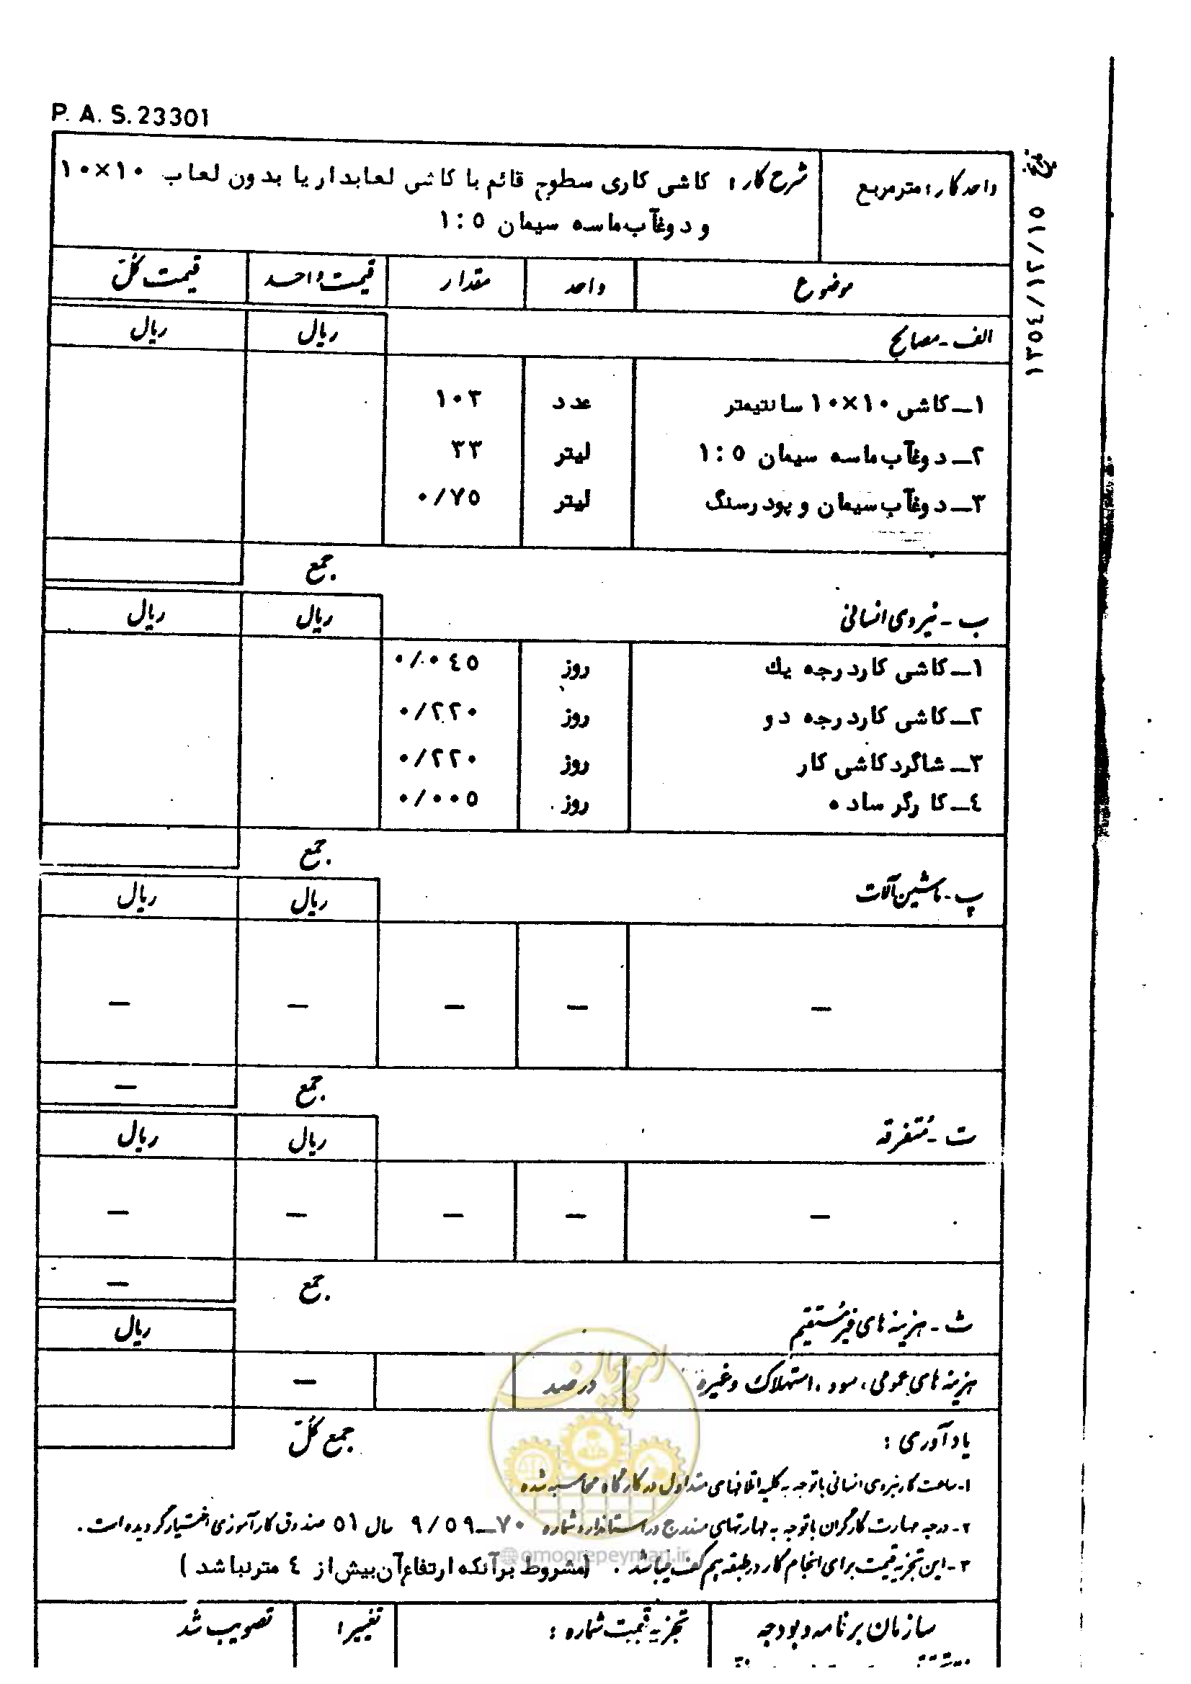 P. A. S. 23301
تاریخ ٥١/١٢/٤٥٣١
واحد کار: مترمربع
شرح کار: کاشی کاری سطوح قائم با کاشی لعابدار یا بدون لعاب ١٠×١٠
و دوغآب ماسه سیمان ٥ : ١
موضوع واحد مقدار قیمت واحد قیمت کلّ
الف - مصالح ریال ریال
١ــ کاشی ١٠×١٠ سانتیمتر عدد ١٠٣
٢ــ دوغآب ماسه سیمان ٥ : ١ لیتر ٣٣
٣ــ دوغآب سیمان و پودرسنگ لیتر ٠/٧٥
جمع
ب - نیروی انسانی ریال ریال
١ــ کاشی کار درجه یك روز ٠/٠٤٥
٢ــ کاشی کار درجه دو روز ٠/٢٢٠
٣ــ شاگرد کاشی کار روز ٠/٢٢٠
٤ــ کارگر ساده روز ٠/٠٠٥
جمع
پ - ماشین آلات ریال ریال
— — — — —
جمع —
ت - مُتفرقه ریال ریال
— — — — —
جمع —
ث - هزینه های غیرمُستقیم ریال
هزینه های عمومی، سود، استهلاک وغیره درصد —
جمع کُلّ
یادآوری :
١- ساعت کار نیروی انسانی باتوجه به کلیه اتلافهای متداول در کارگاه محاسبه شده
٢- درجه مهارت کارگران باتوجه به مهارتهای مندرج در استاندارد شماره ٧٠ــ٩/٥٩ سال ٥١ صندوق کارآموزی اختیار گردیده است.
٣- این تجزیه قیمت برای انجام کار در طبقه هم کف میباشد. (مشروط برآنکه ارتفاع آن بیش از ٤ متر نباشد)
امور پیمان
@omoorepeyman.ir
سازمان برنامه و بودجه تجزیه قیمت شماره : تغییر: تصویب شد